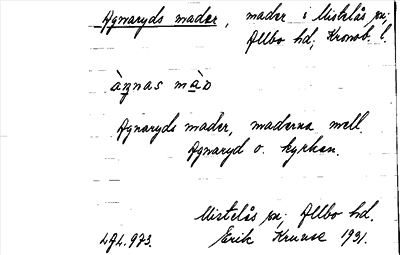 Agnaryds mader, mader i Mistelås sn;
Allbo hd; Kronob. l.
àŋnas màd
Agnaryds mader, maderna mell.
Agnaryd o. kyrkan.
Mistelås sn; Allbo hd.
LAL. 973. Erik Kruuse 1931.